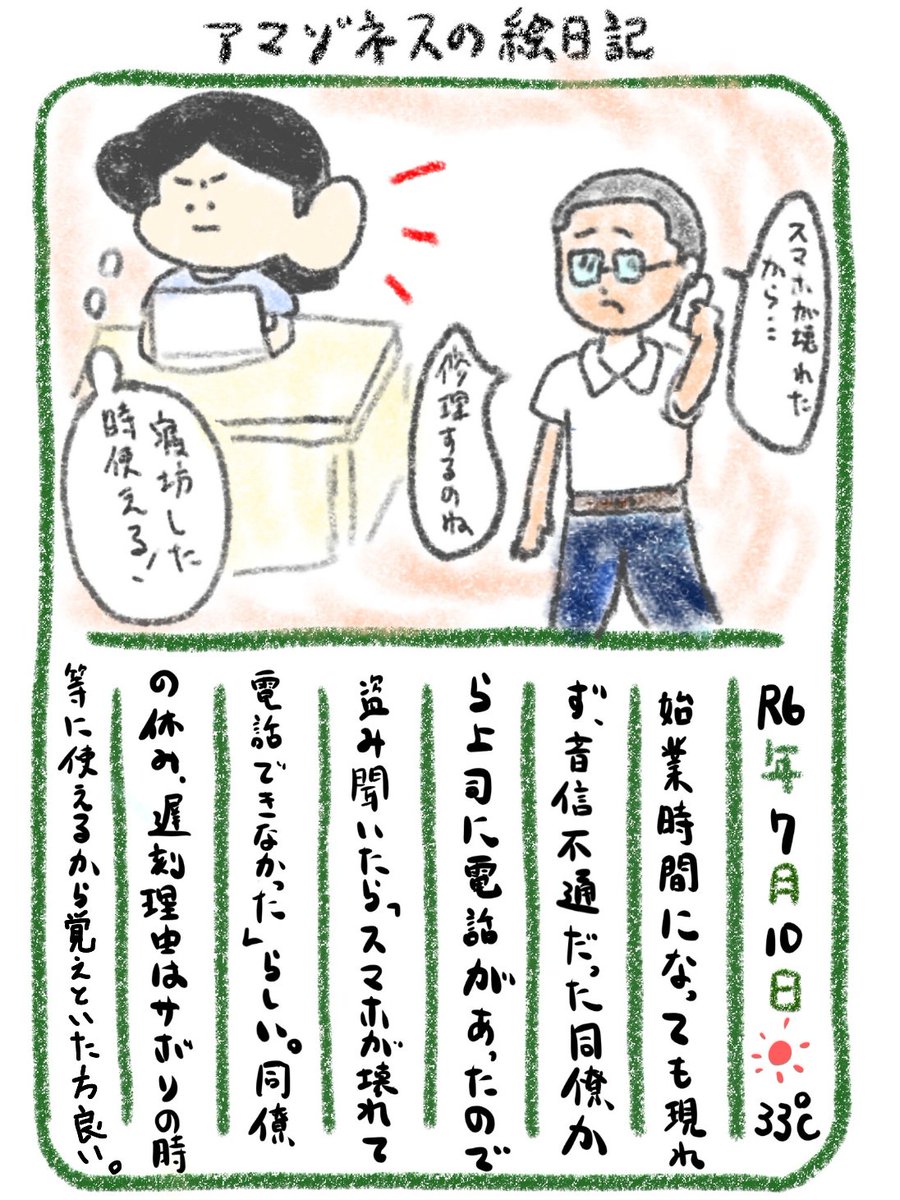 アマゾネスの絵日記
スマホが壊れた
から…
修理するのね
寝坊した
時使える!
R6年7月10日
33℃
始業時間になっても現れ
ず、音信不通だった同僚か
ら上司に電話があったので
盗み聞いたら「スマホが壊れて
電話できなかった」らしい。同僚
の休み、遅刻理由はサボりの時
等に使えるから覚えといた方良い。